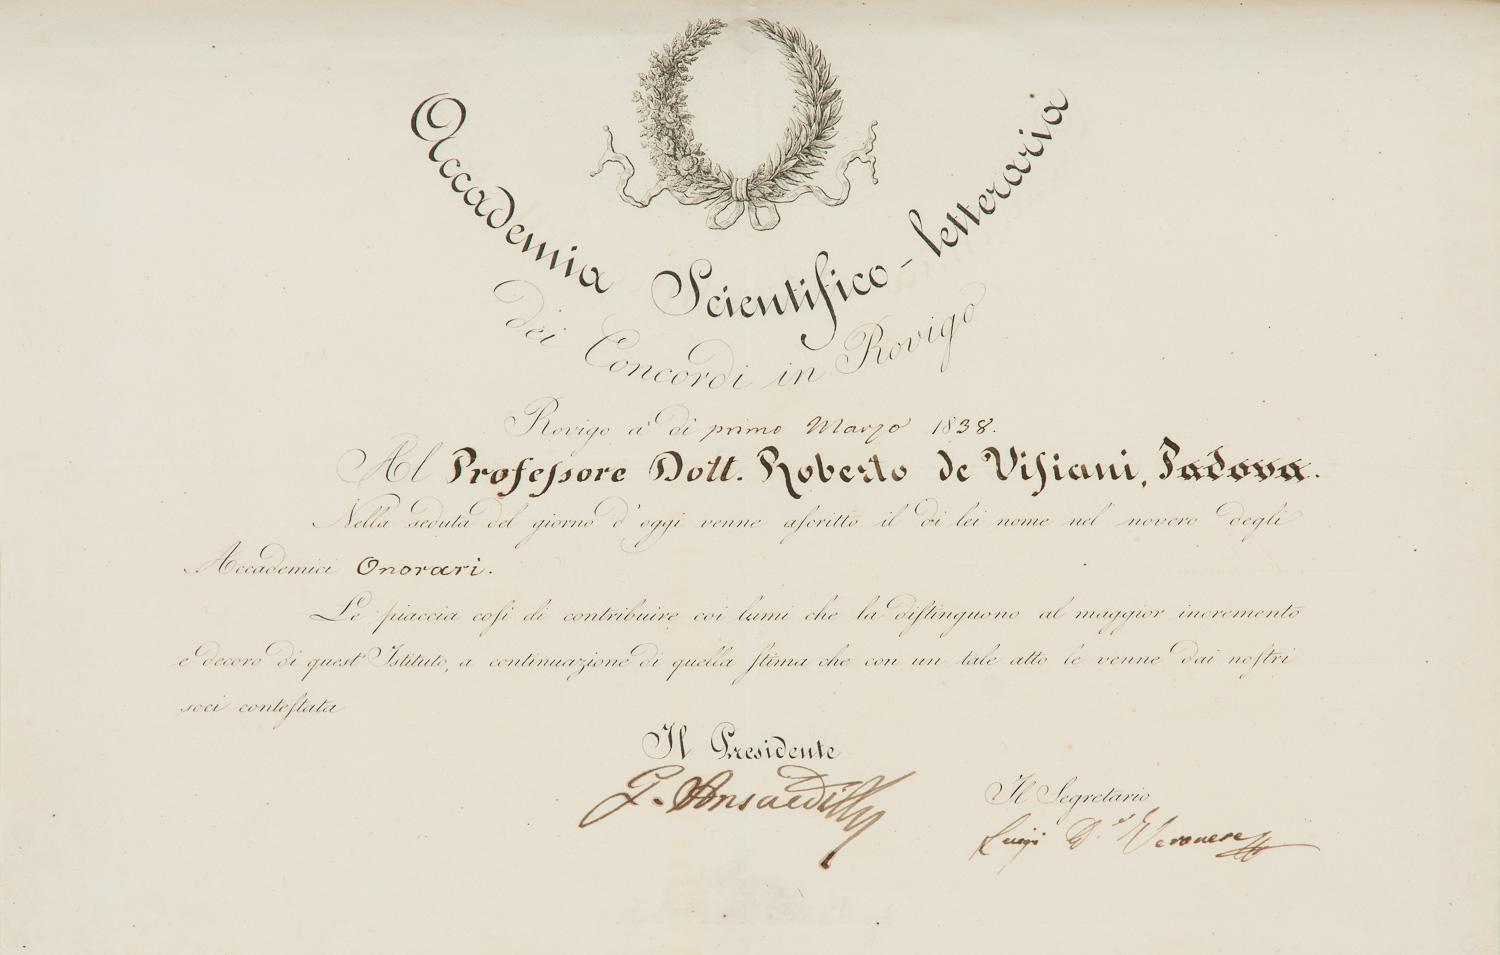 Accademia Scientifico-letteraria
dei Concordi in Rovigo
Rovigo a' di primo Marzo 1838.
Al Professore Dott. Roberto de Visiani, Padova.
Nella seduta del giorno d'oggi venne ascritto il di lei nome nel novero degli
Accademici Onorari.
Le piaccia così di contribuire coi lumi che la distinguono al maggior incremento
e decoro di quest'Istituto, a continuazione di quella stima che con un tale atto le venne dai nostri
soci contestata
Il Presidente
G.
Il Segretario
Luigi D.r Veronese